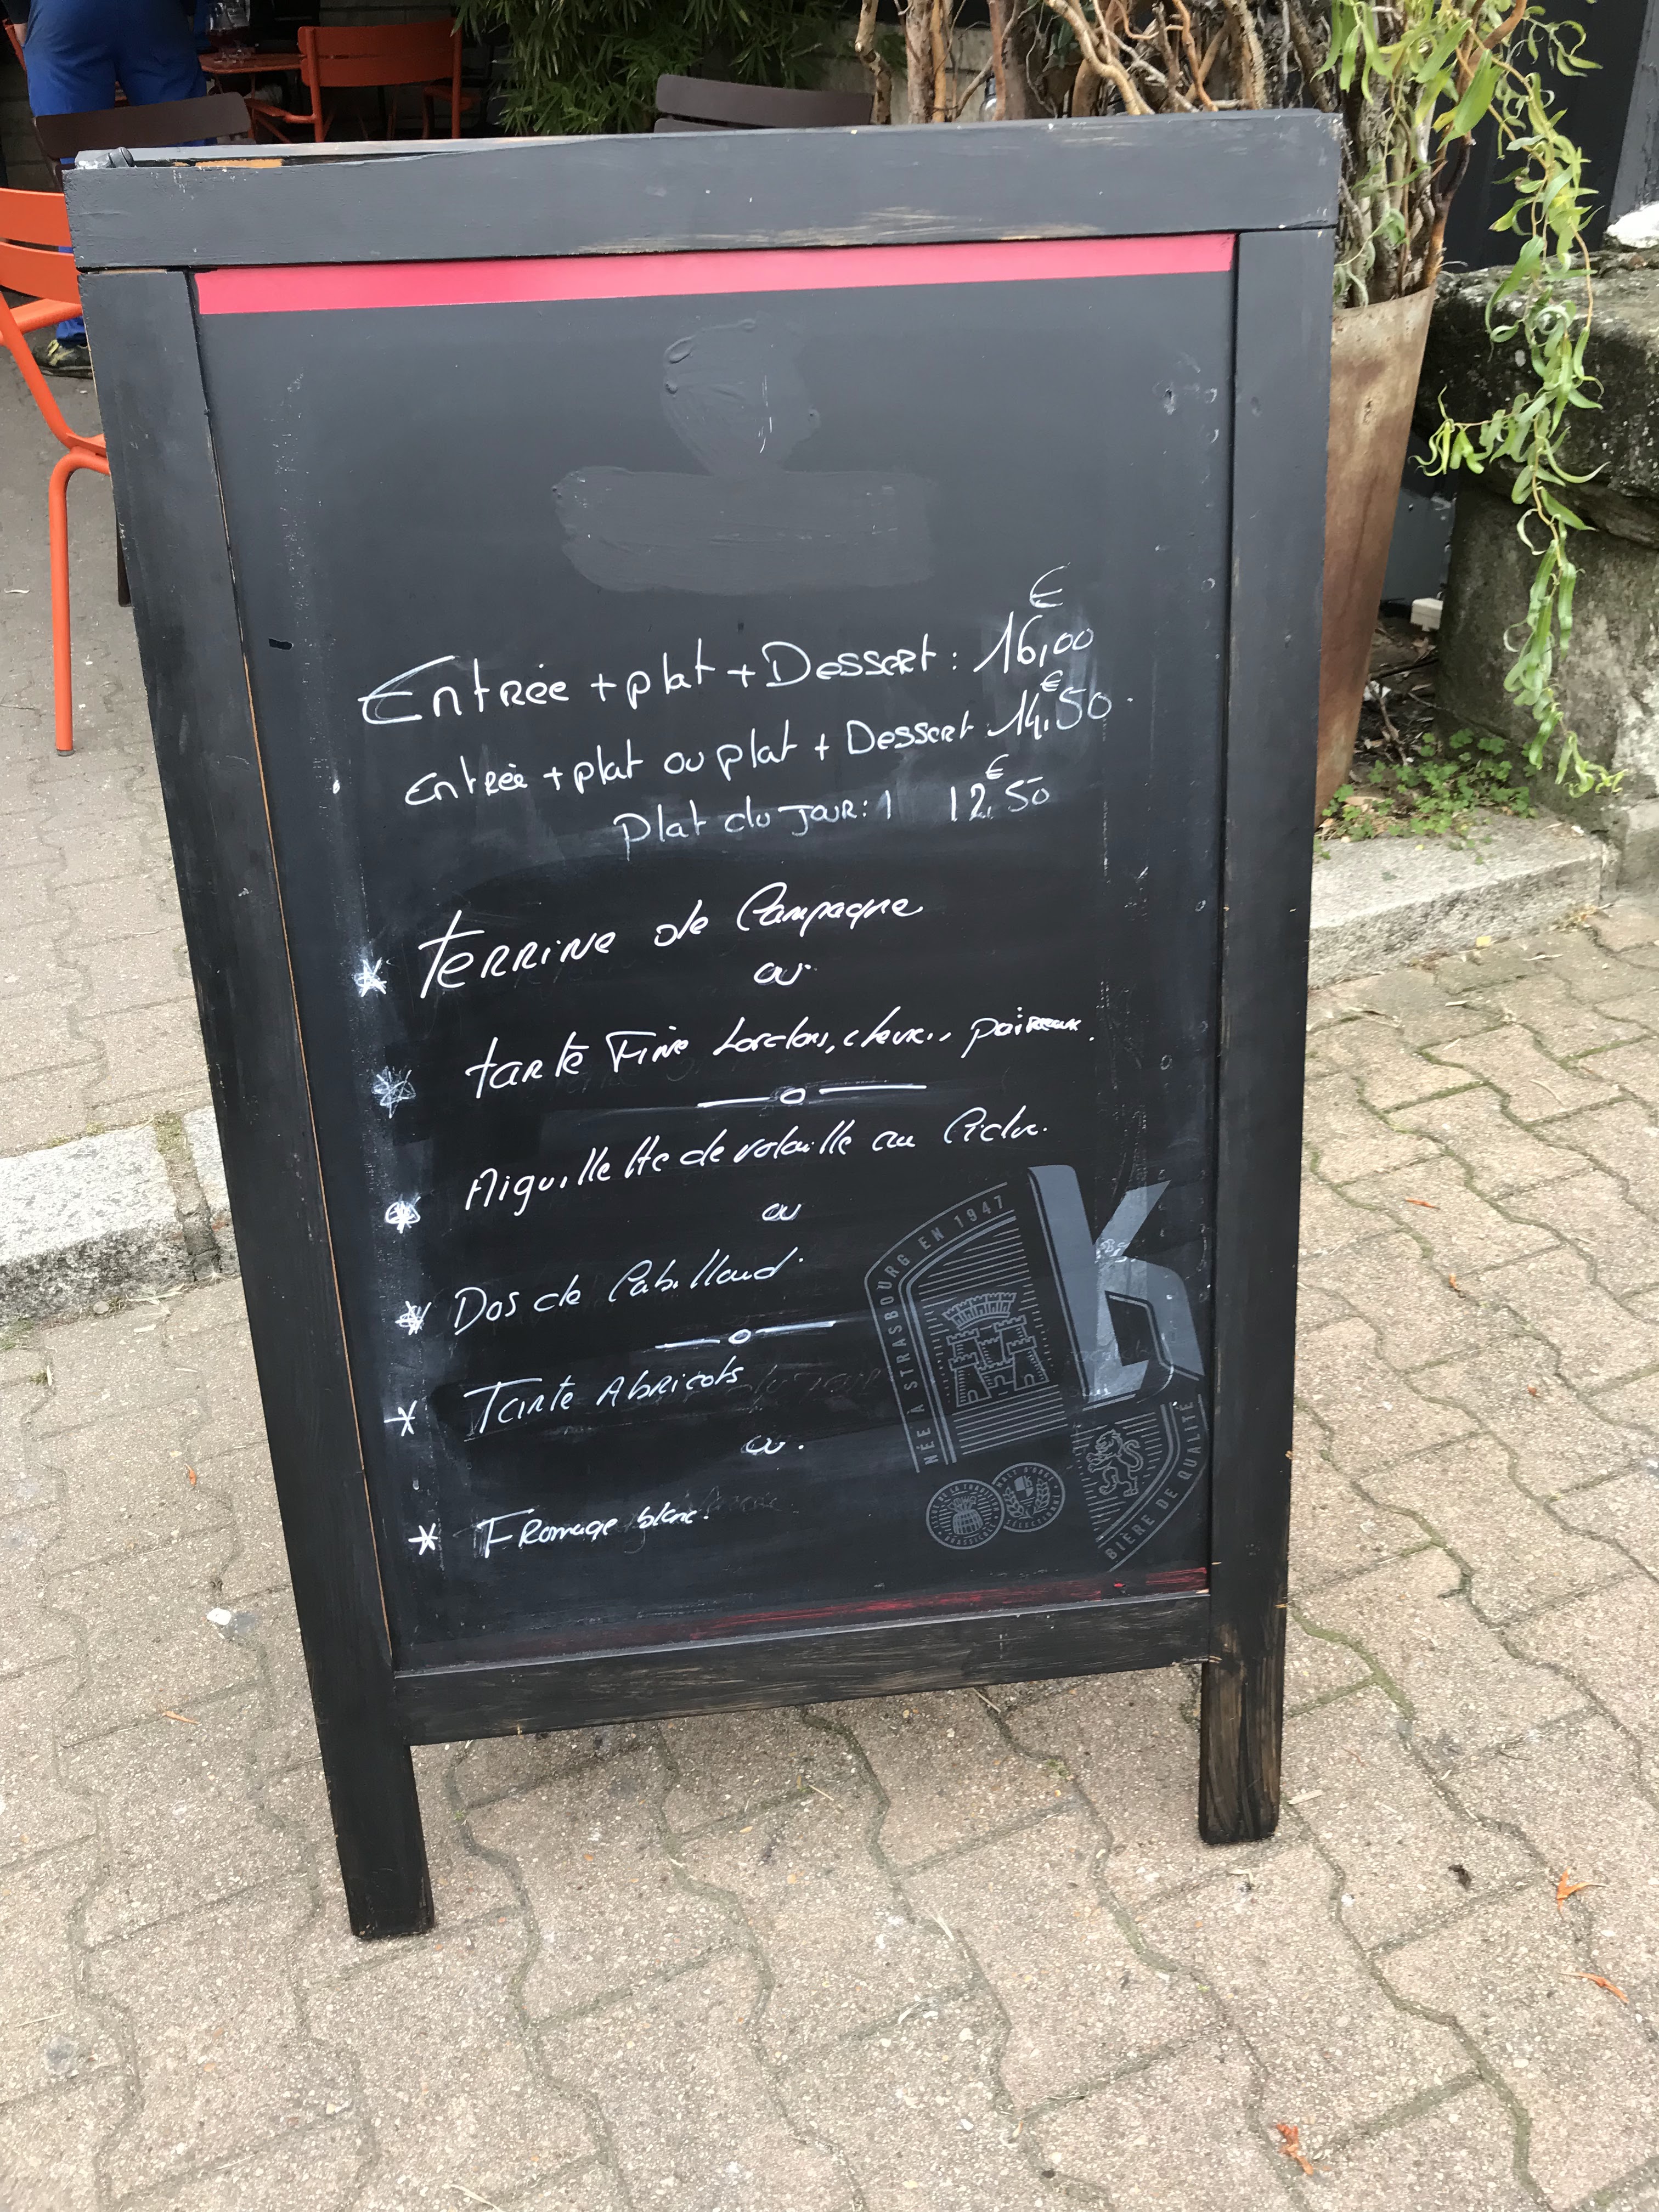 €
Entrée + plat + Dessert : 16,00
€
entrée + plat ou plat + Dessert 14,50
€
plat du jour : 12,50
* terrine de Campagne
ou
* tarte Fine lardons, chèvre, poireaux.
* Aiguillette de volaille au Cidre.
ou
* Dos de Cabillaud.
* Tarte Abricots
ou.
* Fromage blanc.
K
NÉE A STRASBOURG EN 1947
BIÈRE DE QUALITÉ